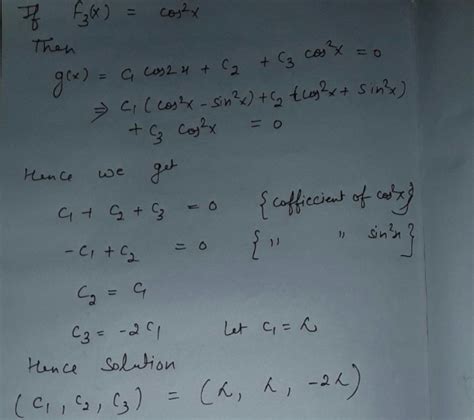 If f₃(x) = cos²x
Then
g(x) = C₁ cos2x + C₂ + C₃ cos²x = 0
⇒ C₁ (cos²x - sin²x) + C₂ (cos²x + sin²x)
+ C₃ cos²x = 0
Hence we get
C₁ + C₂ + C₃ = 0 {cofficcient of cos²x}
-C₁ + C₂ = 0 { ,, ,, sin²x}
C₂ = C₁
C₃ = -2C₁ Let C₁ = λ
Hence Solution
(C₁, C₂, C₃) = (λ, λ, -2λ)